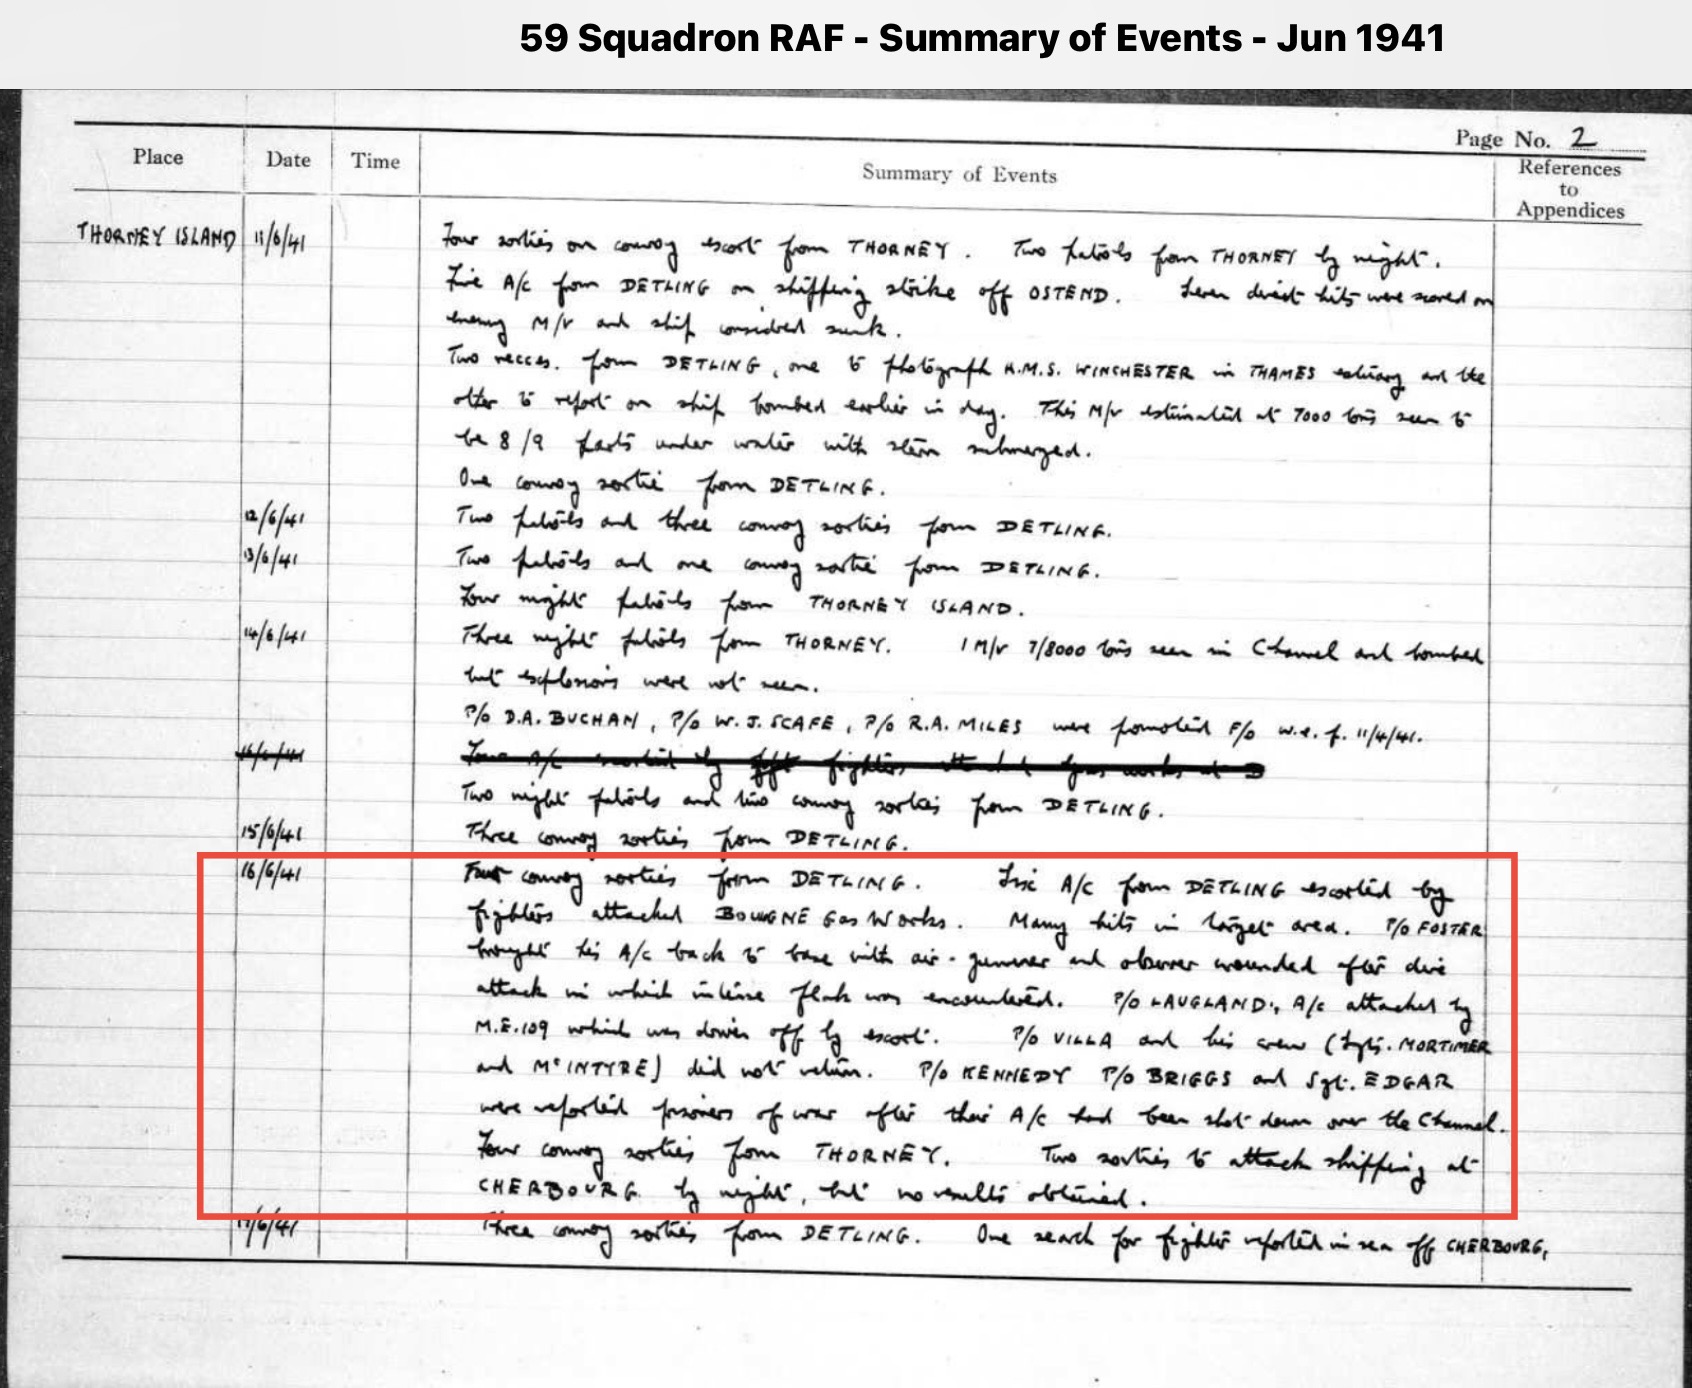 59 Squadron RAF - Summary of Events - Jun 1941
Page No. 2
Place Date Time Summary of Events References to Appendices
THORNEY ISLAND 11/6/41 Four sorties on convoy escort from THORNEY. Two patrols from THORNEY by night.
Five A/c from DETLING on shipping strike off OSTEND. Seven direct hits were scored on
enemy M/V and ship considered sunk.
Two recces. from DETLING, one to photograph H.M.S. WINCHESTER in THAMES estuary and the
other to report on ship bombed earlier in day. This M/V estimated at 7000 tons seen to
be 8/9 parts under water with stern submerged.
One convoy sortie from DETLING.
12/6/41 Two patrols and three convoy sorties from DETLING.
13/6/41 Two patrols and one convoy sortie from DETLING.
Four night patrols from THORNEY ISLAND.
14/6/41 Three night patrols from THORNEY. 1 M/V 7/8000 tons seen in Channel and bombed
but explosions were not seen.
P/O D.A. BUCHAN, P/O W.J. SCAFE, P/O R.A. MILES were promoted F/O w.e.f. 11/4/41.
Four A/C escorted by fighters attacked Gas works at B
Two night patrols and two convoy sorties from DETLING.
15/6/41 Three convoy sorties from DETLING.
16/6/41 convoy sorties from DETLING. A/C from DETLING escorted by
fighters attacked BOULOGNE Gas Works. Many hits in target area. P/O FOSTER
brought his A/C back to base with air-gunner and observer wounded after dive
attack in which intense flak was encountered. P/O LAUGLAND', A/c attacked by
M.E.109 which was driven off by escort. P/O VILLA and his crew (Sgts. MORTIMER
and McINTYRE) did not return. P/O KENNEDY P/O BRIGGS and Sgt. EDGAR
were reported prisoners of war after their A/C had been shot down over the Channel.
Four convoy sorties from THORNEY. Two sorties to attack shipping at
CHERBOURG by night, but no results obtained.
17/6/41 Three convoy sorties from DETLING. One search for fighter reported in sea off CHERBOURG,